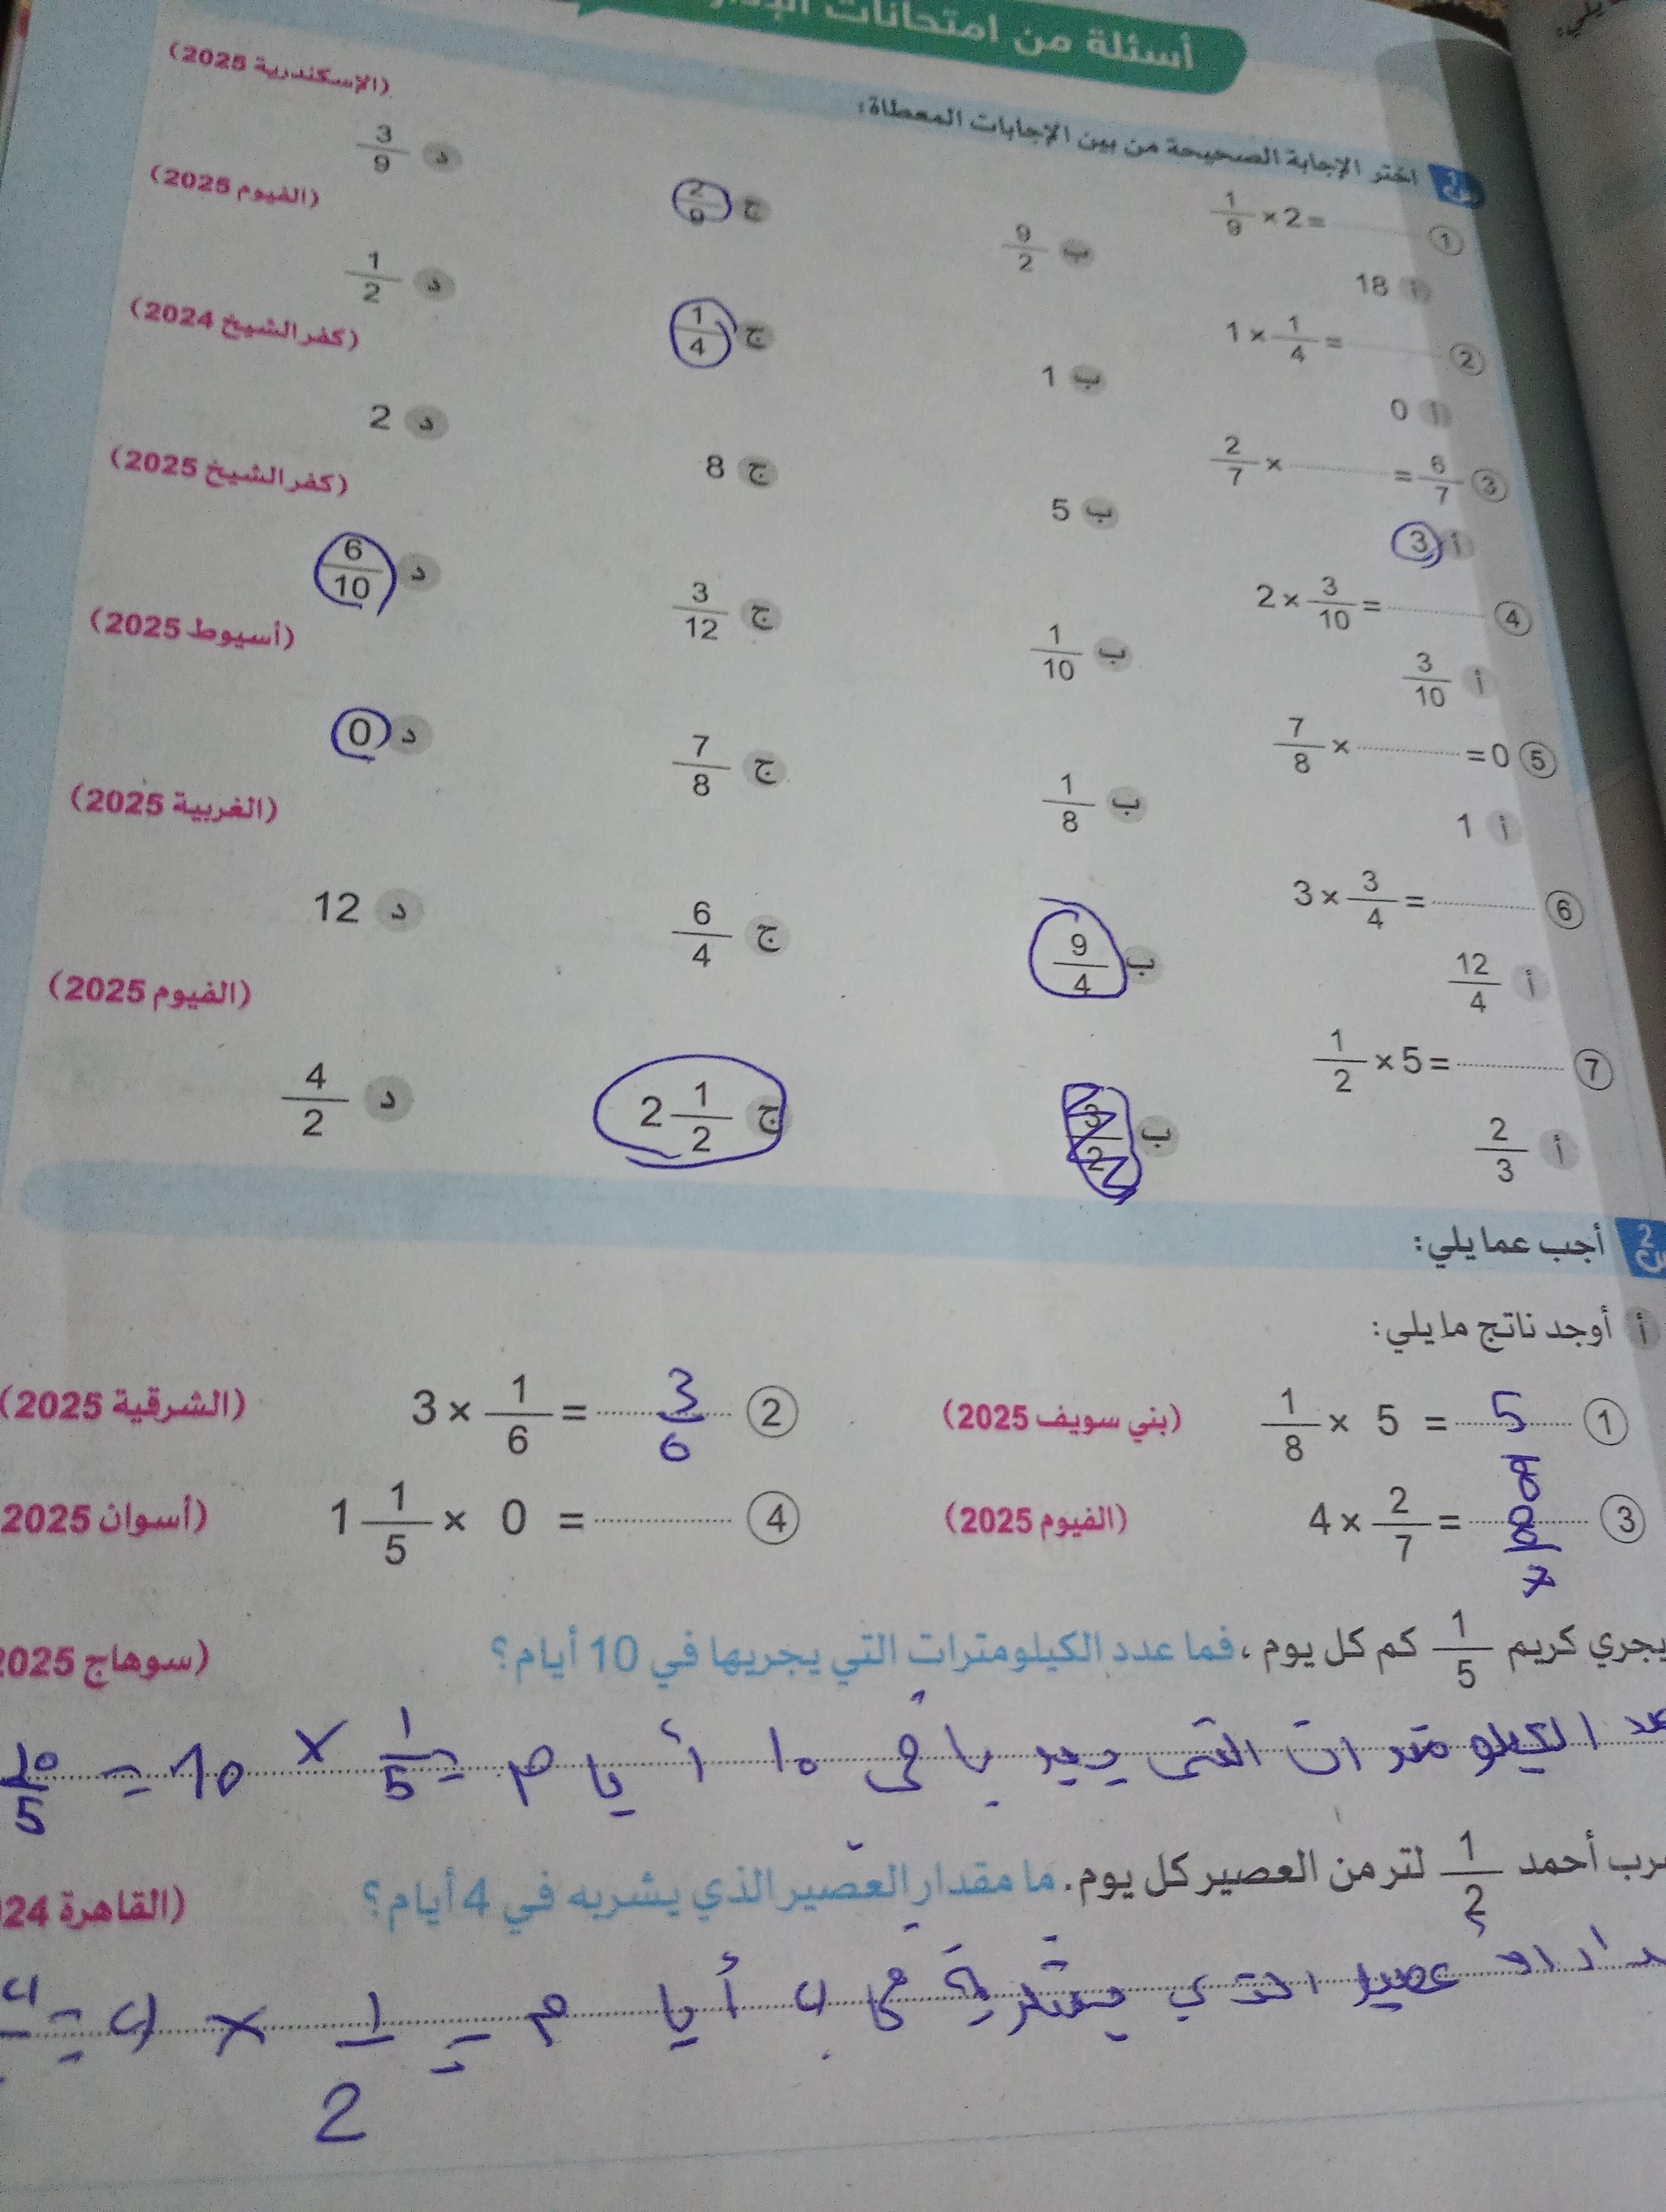 أسئلة من امتحانات
س1 اختر الإجابة الصحيحة من بين الإجابات المعطاة:
1 1/9 × 2 = ........ (الإسكندرية 2025)
أ 18 ب 9/2 ج 2/9 د 3/9
2 1 × 1/4 = ........ (الفيوم 2025)
أ 0 ب 1 ج 1/4 د 1/2
3 2/7 × ........ = 6/7 (كفر الشيخ 2024)
أ 3 ب 5 ج 8 د 2
4 2 × 3/10 = ........ (كفر الشيخ 2025)
أ 3/10 ب 1/10 ج 3/12 د 6/10
5 7/8 × ........ = 0 (أسيوط 2025)
أ 1 ب 1/8 ج 7/8 د 0
6 3 × 3/4 = ........ (الغربية 2025)
أ 12/4 ب 9/4 ج 6/4 د 12
7 1/2 × 5 = ........ (الفيوم 2025)
أ 2/3 ب 3/2 ج 2 1/2 د 4/2
س2 أجب عما يلي:
أ أوجد ناتج ما يلي:
1 1/8 × 5 = 5/8 (بني سويف 2025) 2 3 × 1/6 = 3/6 (الشرقية 2025)
3 4 × 2/7 = 8/7 (الفيوم 2025) 4 1 1/5 × 0 = ........ (أسوان 2025
يجري كريم 1/5 كم كل يوم، فما عدد الكيلومترات التي يجريها في 10 أيام؟ (سوهاج 2025
الكيلو مترات التى يجريها فى ١٠ أيام = 1/5 × 10 = 10/5
أحمد 1/2 لتر من العصير كل يوم. ما مقدار العصير الذي يشربه في 4 أيام؟ (القاهرة 24
عصير الذي يشربة فى ٤ أيام = 1/2 × ٤ =